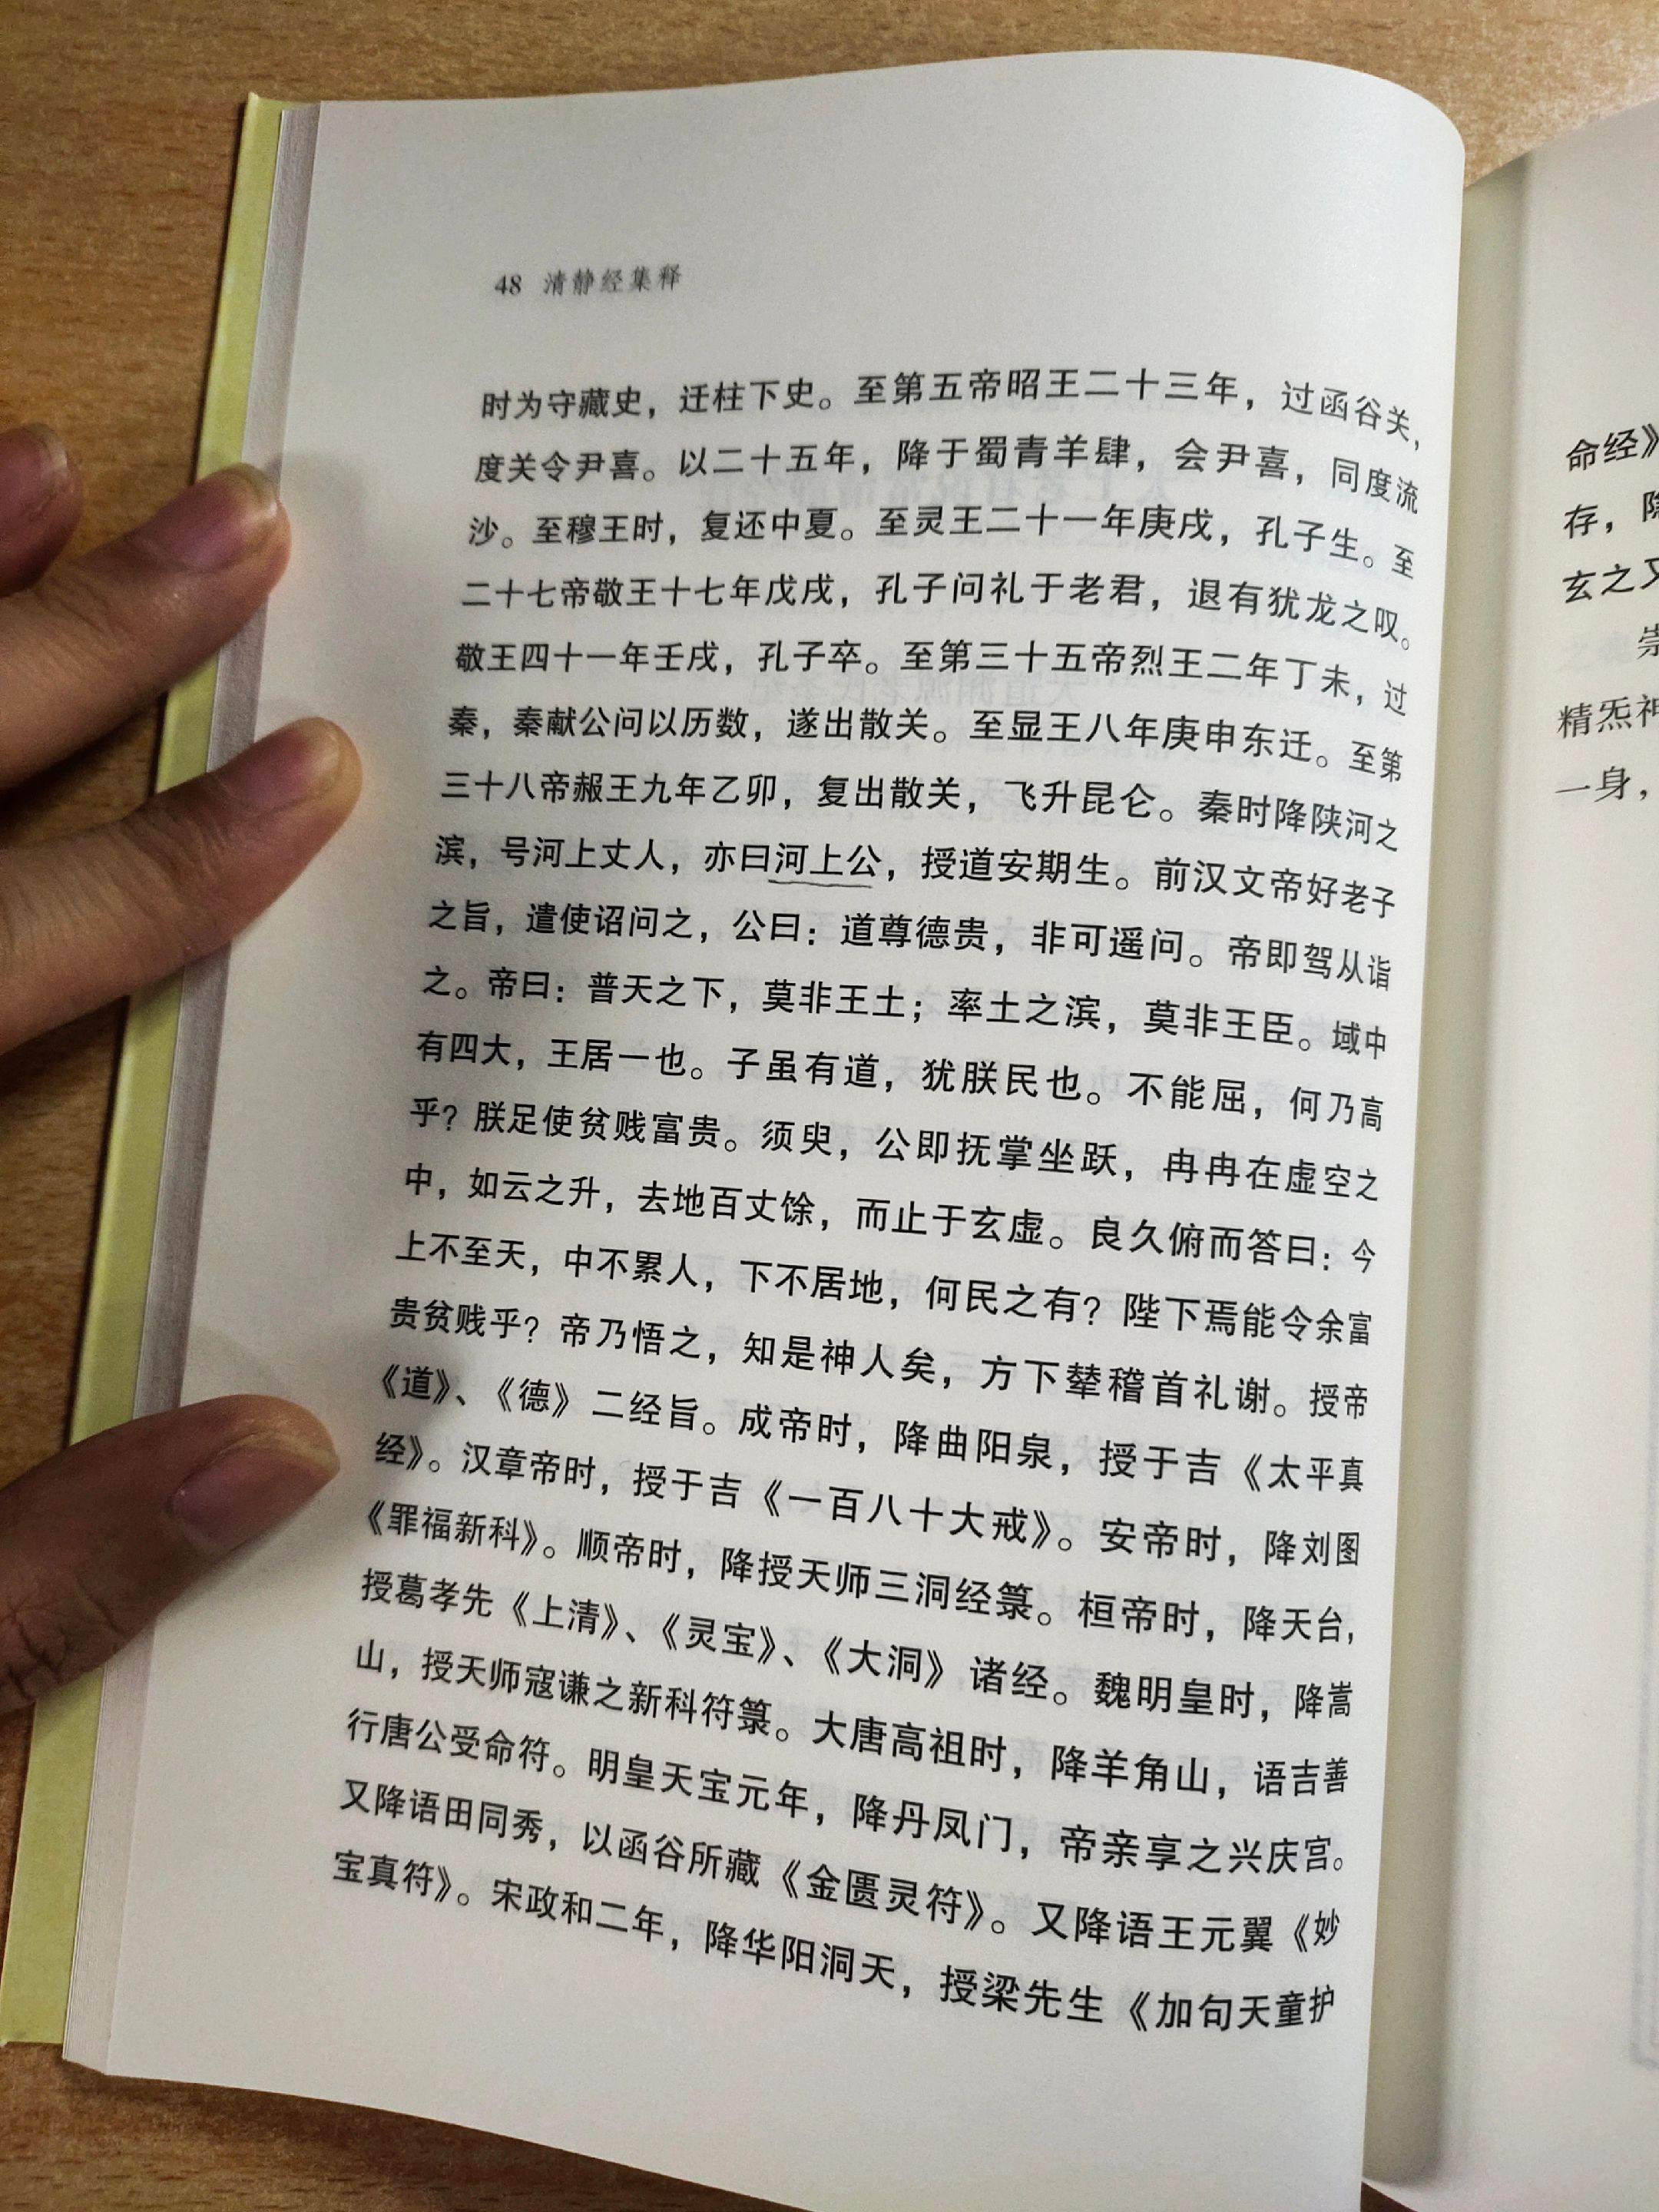 48 清静经集释
时为守藏史，迁柱下史。至第五帝昭王二十三年，过函谷关，
度关令尹喜。以二十五年，降于蜀青羊肆，会尹喜，同度流
沙。至穆王时，复还中夏。至灵王二十一年庚戌，孔子生。至
二十七帝敬王十七年戊戌，孔子问礼于老君，退有犹龙之叹。
敬王四十一年壬戌，孔子卒。至第三十五帝烈王二年丁未，过
秦，秦献公问以历数，遂出散关。至显王八年庚申东迁。至第
三十八帝赧王九年乙卯，复出散关，飞升昆仑。秦时降陕河之
滨，号河上丈人，亦曰河上公，授道安期生。前汉文帝好老子
之旨，遣使诏问之，公曰：道尊德贵，非可遥问。帝即驾从诣
之。帝曰：普天之下，莫非王土；率土之滨，莫非王臣。域中
有四大，王居一也。子虽有道，犹朕民也。不能屈，何乃高
乎？朕足使贫贱富贵。须臾，公即抚掌坐跃，冉冉在虚空之
中，如云之升，去地百丈馀，而止于玄虚。良久俯而答曰：今
上不至天，中不累人，下不居地，何民之有？陛下焉能令余富
贵贫贱乎？帝乃悟之，知是神人矣，方下辇稽首礼谢。授帝
《道》、《德》二经旨。成帝时，降曲阳泉，授于吉《太平真
经》。汉章帝时，授于吉《一百八十大戒》。安帝时，降刘图
《罪福新科》。顺帝时，降授天师三洞经箓。桓帝时，降天台，
授葛孝先《上清》、《灵宝》、《大洞》诸经。魏明皇时，降嵩
山，授天师寇谦之新科符箓。大唐高祖时，降羊角山，语吉善
行唐公受命符。明皇天宝元年，降丹凤门，帝亲享之兴庆宫。
又降语田同秀，以函谷所藏《金匮灵符》。又降语王元翼《妙
宝真符》。宋政和二年，降华阳洞天，授梁先生《加句天童护
命经》
存，
玄之又
精炁神
一身，